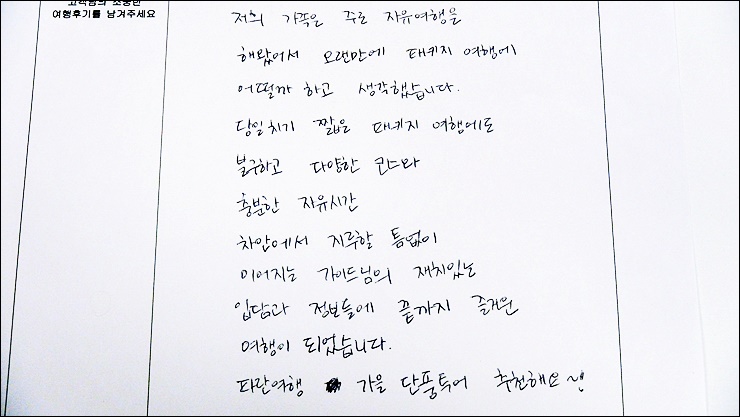 고객님의 소중한
여행후기를 남겨주세요
저희 가족은 주로 자유여행을
해왔어서 오랜만에 패키지 여행에
어떨까 하고 생각했습니다.
당일치기 짧은 패키지 여행에도
불구하고 다양한 코스와
충분한 자유시간
차안에서 지루할 틈없이
이어지는 가이드님의 재치있는
입담과 정보들에 끝까지 즐거운
여행이 되었습니다.
파란여행 가을 단풍투어 추천해요~!